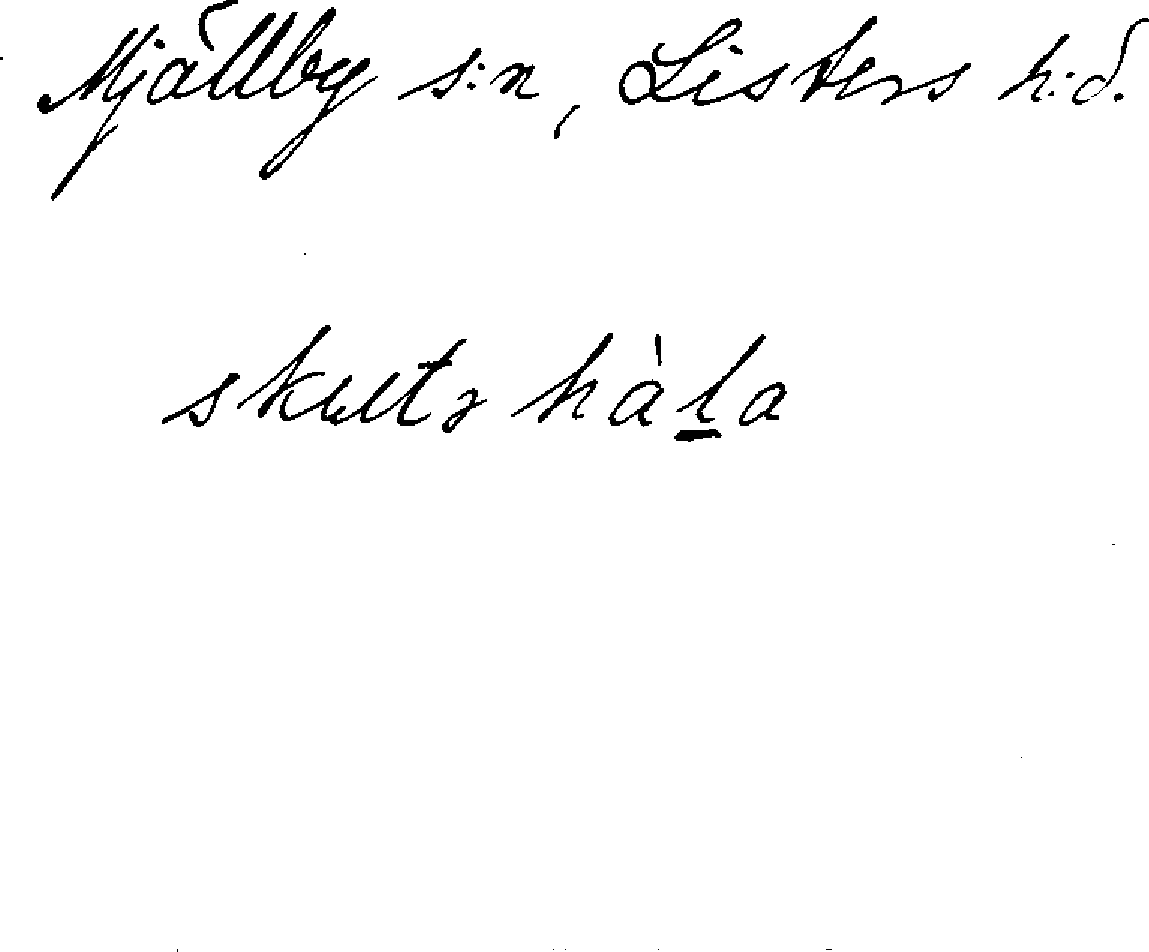 Mjällby s:n, Listers h:d.
skultz hàl̲a